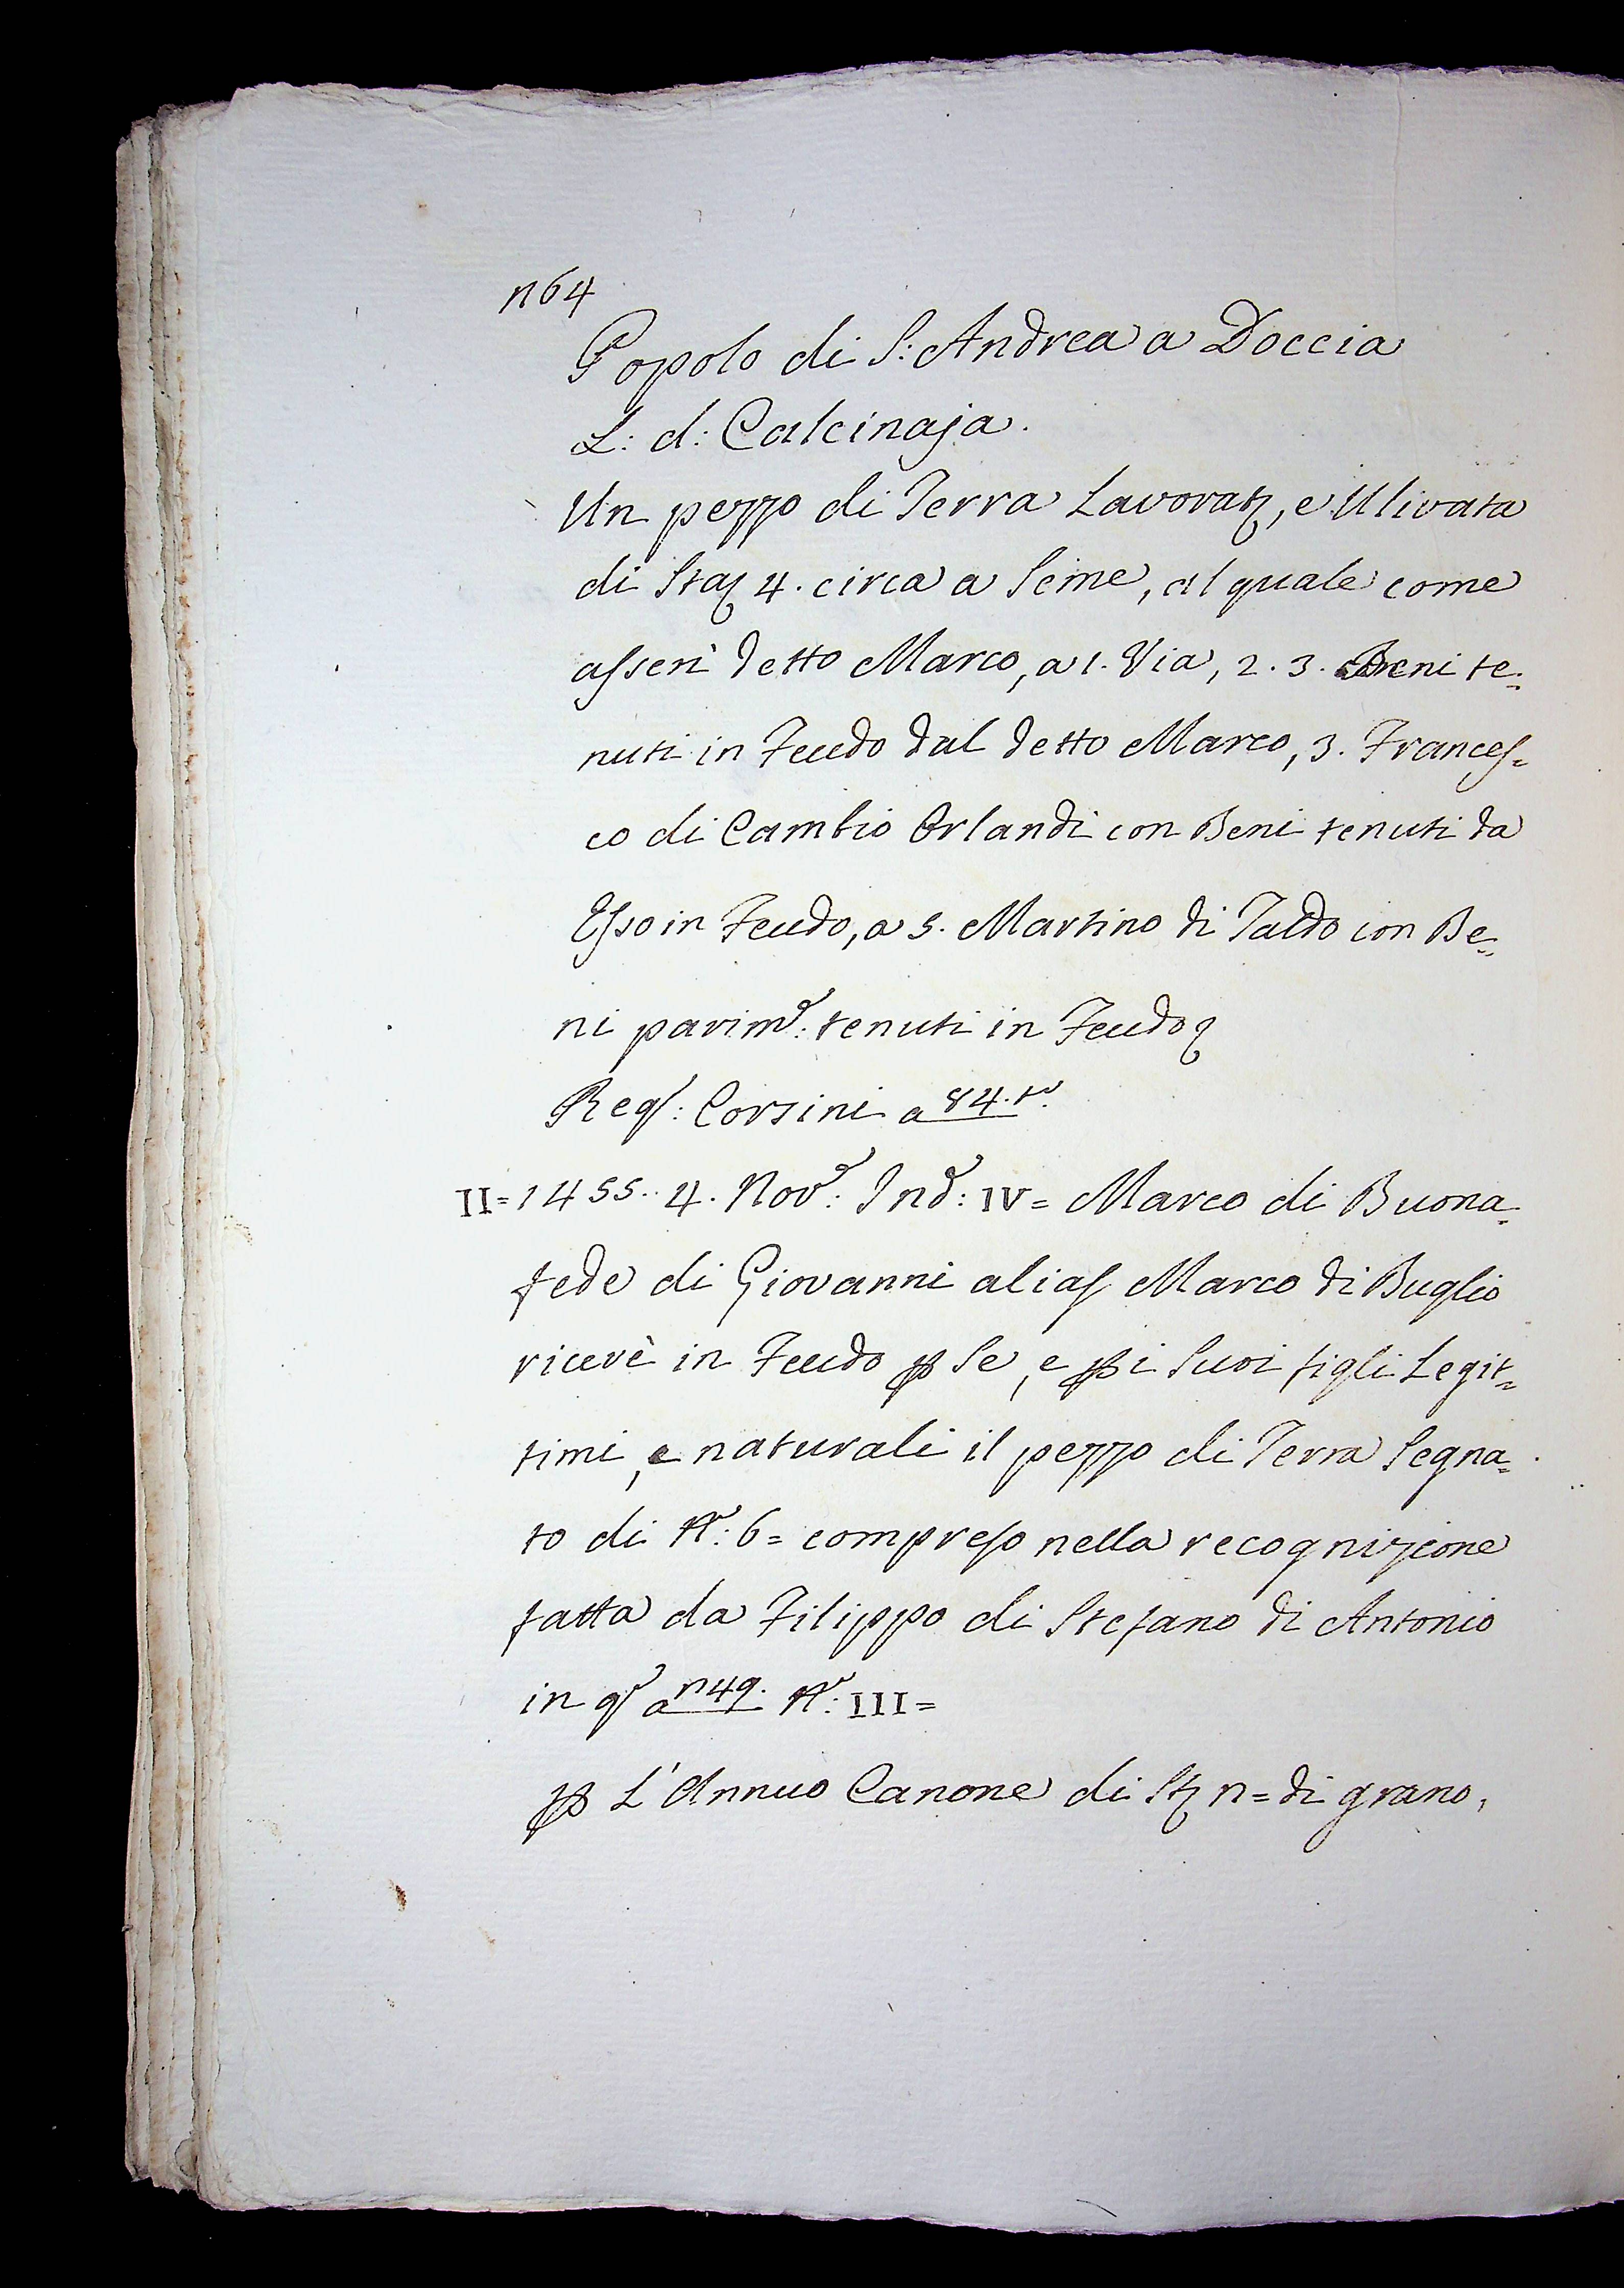 n64
Popolo di S: Andrea a Doccia
L: d: Calcinaja.
Un pezzo di Terra Lavorat, e Ulivata
di Sta 4. circa a Seme, al quale come
asserì detto Marco, a 1. Via, 2. 3. Beni te=
nuti in Feudo dal detto Marco, 3. Frances=
co di Cambio Orlandi con Beni tenuti da
Esso in Feudo, a 5. Martino di Taldo con Be=
ni parimte: tenuti in Feudo
Reg: Corsini a 84. to.
II= 1455. 4. Nove: Inde: IV= Marco di Buona=
fede di Giovanni alias Marco di Buglio
ricevè in Feudo p Se, e p i Suoi figli Legit=
timi, e naturali il pezzo di Terra Segna=
to di No: 6= compreso nella recognizione
fatta da Filippo di Stefano di Antonio
in qo a n49. No: III=
p L'Annuo Canone di St n= di grano,